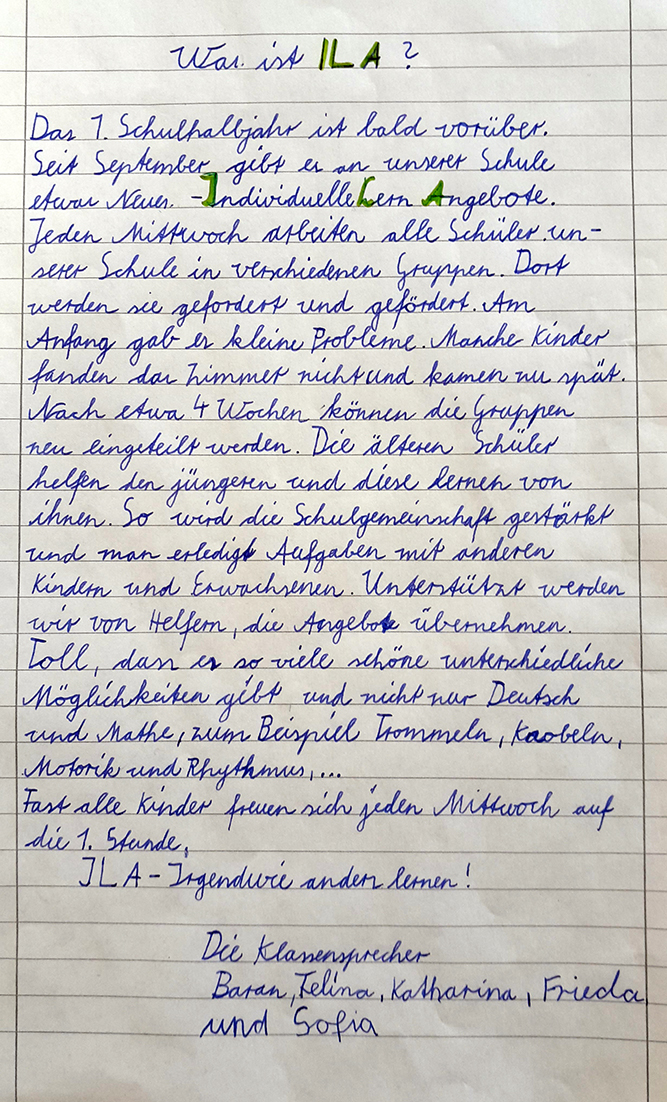 Was ist ILA?
Das 1. Schulhalbjahr ist bald vorüber.
Seit September gibt es an unserer Schule
etwas Neues. -Individuelle Lern Angebote.
Jeden Mittwoch arbeiten alle Schüler un-
serer Schule in verschiedenen Gruppen. Dort
werden sie gefordert und gefördert. Am
Anfang gab es kleine Probleme. Manche Kinder
fanden das Zimmer nicht und kamen zu spät.
Nach etwa 4 Wochen können die Gruppen
neu eingeteilt werden. Die älteren Schüler
helfen den jüngeren und diese lernen von
ihnen. So wird die Schulgemeinschaft gestärkt
und man erledigt Aufgaben mit anderen
Kindern und Erwachsenen. Unterstützt werden
wir von Helfern, die Angebote übernehmen.
Toll, dass es so viele schöne unterschiedliche
Möglichkeiten gibt und nicht nur Deutsch
und Mathe, zum Beispiel Trommeln, Knobeln,
Motorik und Rhythmus,...
Fast alle Kinder freuen sich jeden Mittwoch auf
die 1. Stunde.
ILA - Irgendwie anders lernen!
Die Klassensprecher
Baran, Felina, Katharina, Frieda
und Sofia